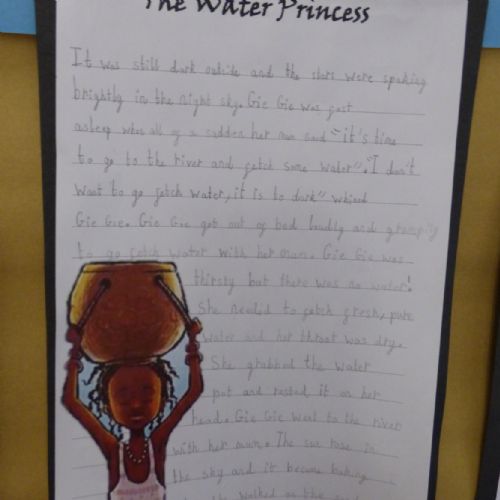 The Water Princess
It was still dark outside and the stars were sparking
brightly in the night sky. Gie Gie was fast
asleep when all of a sudden her mum said "it's time
to go to the river and fetch some water". "I don't
want to go fetch water, it is to dark" whined
Gie Gie. Gie Gie got out of bed loudly and grumpily
to go fetch water with her mum. Gie Gie was
thirsty but there was no water!
She needed to fetch fresh, pure
water and her throat was dry.
She grabbed the water
pot and rested it on her
head. Gie Gie went to the river
with her mum. The sun rose in
the sky and it became baking
walked